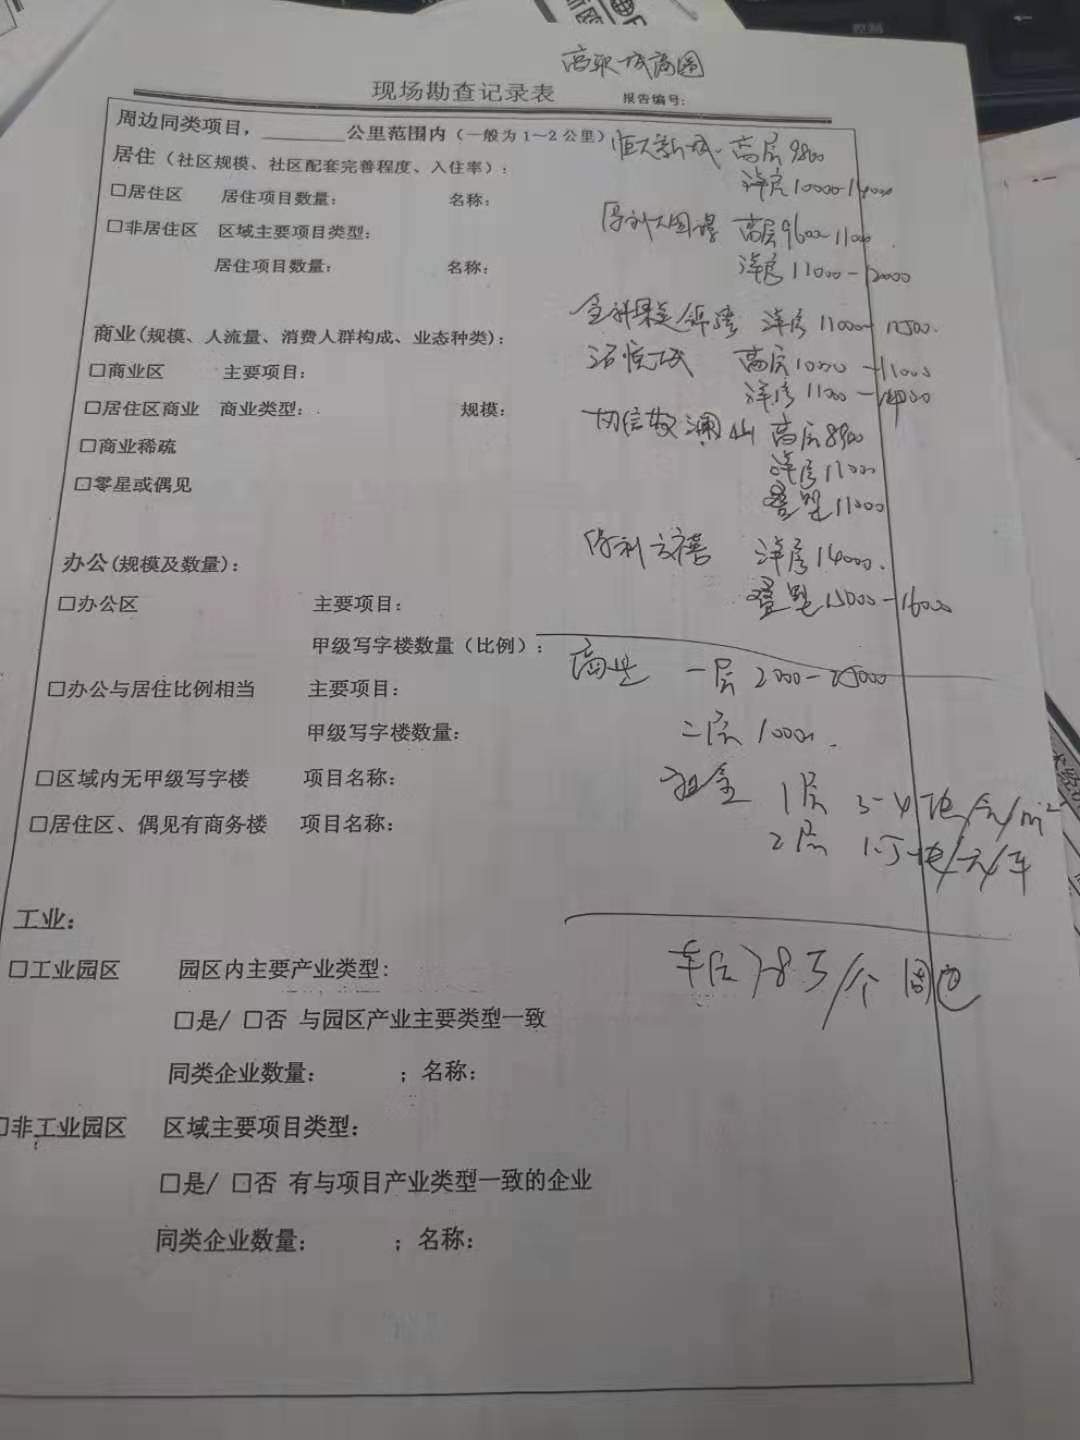 高职城商圈
现场勘查记录表 报告编号:
周边同类项目，______公里范围内（一般为1~2公里） 恒大新城 高层9800
居住（社区规模、社区配套完善程度、入住率）: 洋房10000-14000
□居住区 居住项目数量: 名称:
□非居住区 区域主要项目类型: 保利大国璟 高层9600-11000
居住项目数量: 名称: 洋房11000-12000
洋房11000-12500.
商业(规模、人流量、消费人群构成、业态种类): 高层10000-11000
□商业区 主要项目: 洋房11000-
□居住区商业 商业类型: 规模:
澜山 高层8900
□商业稀疏 洋房11000
□零星或偶见 叠墅11000
保利 洋房14000.
办公(规模及数量): 叠墅15000-16000
□办公区 主要项目:
甲级写字楼数量（比例）:
商业 一层 2000-25000
□办公与居住比例相当 主要项目:
甲级写字楼数量: 二层 10000.
□区域内无甲级写字楼 项目名称: 租金 1层 3-4 /m²
□居住区、偶见有商务楼 项目名称: 2层
工业:
□工业园区 园区内主要产业类型: 车位7-8万/个
□是/ □否 与园区产业主要类型一致
同类企业数量: ; 名称:
□非工业园区 区域主要项目类型:
□是/ □否 有与项目产业类型一致的企业
同类企业数量: ; 名称: